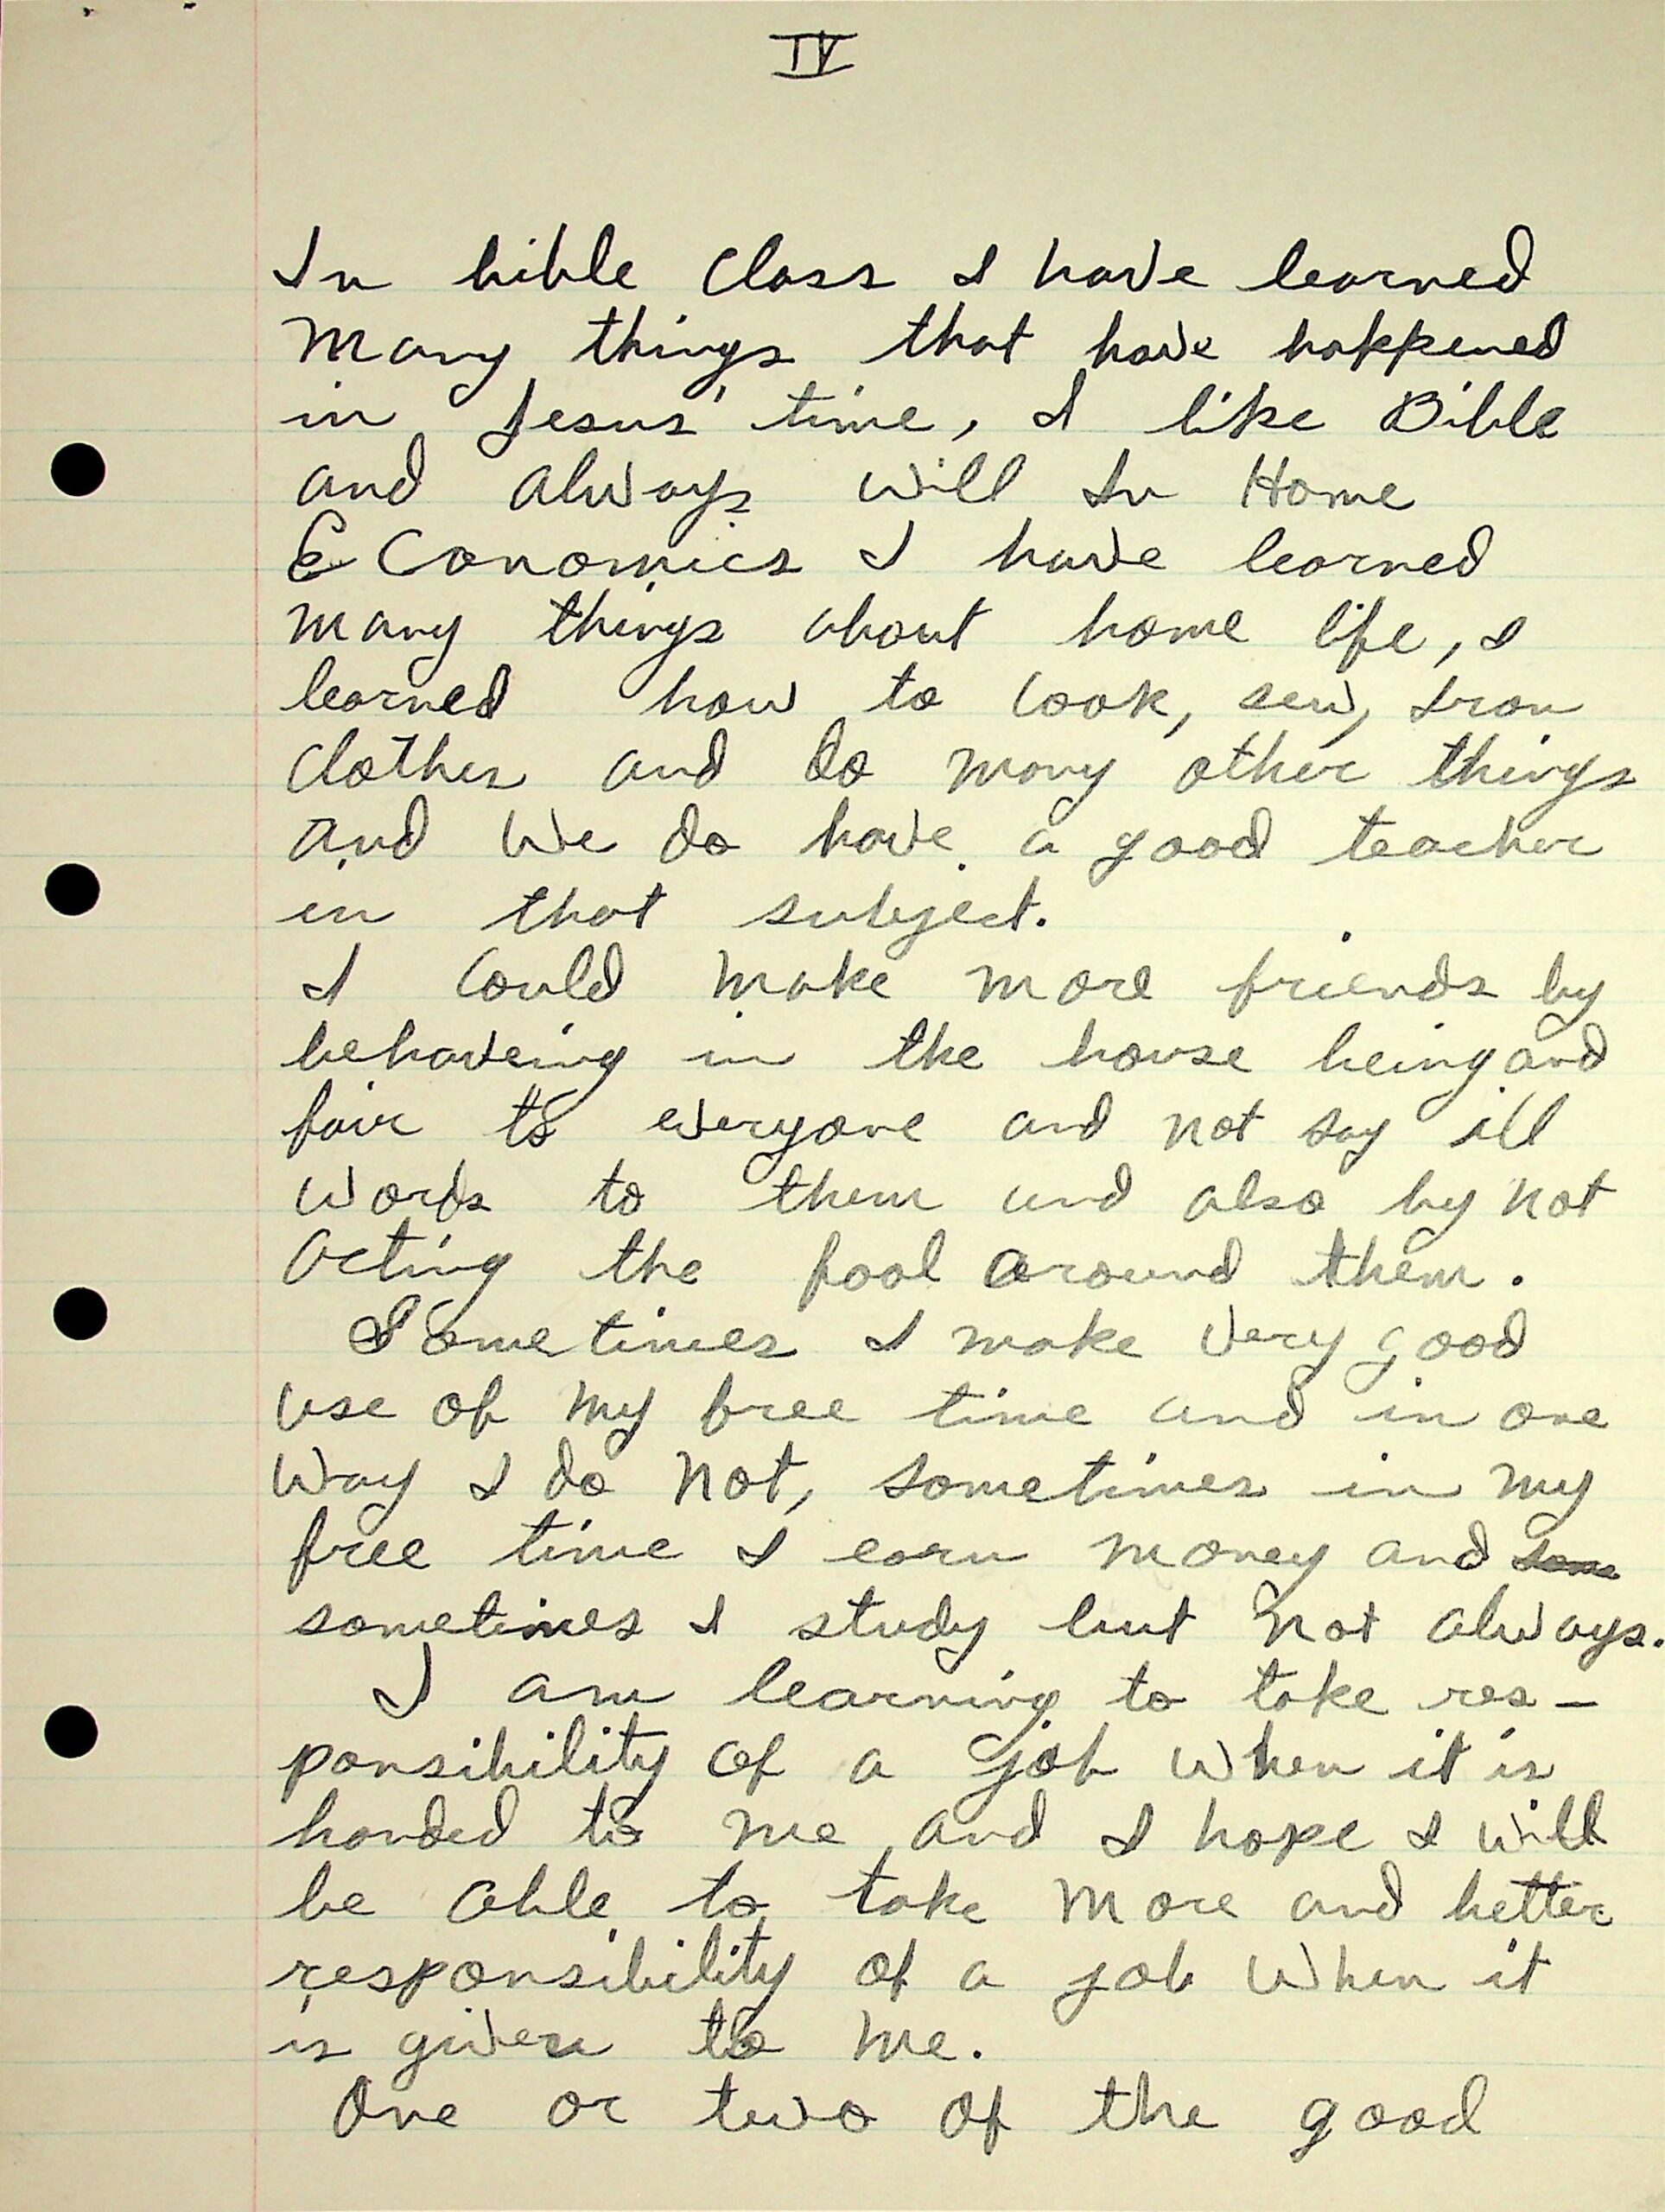 IV
In bible Class I have learned
many things that have happened
in Jesus' time, I like Bible
and always will In Home
EConomics I have learned
many things about home life, I
learned how to Cook, sew, Iron
Clothes and do many other things
and We do have a good teacher
in that subject.
I Could make more friends by
behaveing in the house being and
fair to everyone and not say ill
words to them and also by not
acting the fool around them.
Sometimes I make very good
use of my free time and in one
way I do not, sometimes in my
free time I earn money and some
sometimes I study but not always.
I am learning to take res-
ponsibility of a job when it is
handed to me and I hope I will
be able to take more and better
responsibility of a job when it
is given to me.
One or two of the good